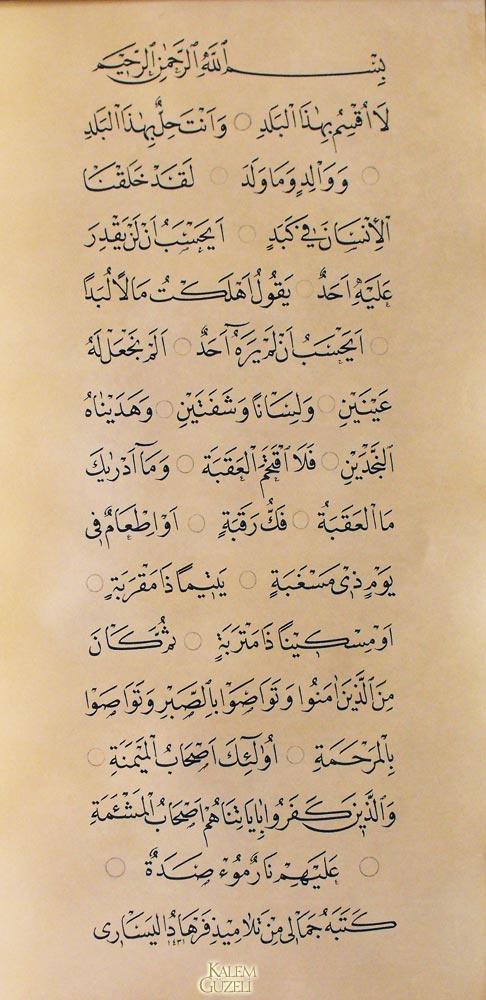 بِسْمِ اللّٰهِ الرَّحْمٰنِ الرَّحِيمِ
لَا اُقْسِمُ بِهٰذَا الْبَلَدِ ○ وَاَنْتَ حِلٌّ بِهٰذَا الْبَلَدِ
○ وَوَالِدٍ وَمَا وَلَدَ ○ لَقَدْ خَلَقْنَا
الْاِنْسَانَ فِي كَبَدٍ ○ اَيَحْسَبُ اَنْ لَنْ يَقْدِرَ
عَلَيْهِ اَحَدٌ ○ يَقُولُ اَهْلَكْتُ مَالًا لُبَدًا
○ اَيَحْسَبُ اَنْ لَمْ يَرَهُٓ اَحَدٌ ○ اَلَمْ نَجْعَلْ لَهُ
عَيْنَيْنِ ○ وَلِسَانًا وَشَفَتَيْنِ ○ وَهَدَيْنَاهُ
النَّجْدَيْنِ ○ فَلَا اقْتَحَمَ الْعَقَبَةَ ○ وَمَٓا اَدْرٰيكَ
مَا الْعَقَبَةُ ○ فَكُّ رَقَبَةٍ ○ اَوْ اِطْعَامٌ فِي
يَوْمٍ ذِي مَسْغَبَةٍ ○ يَتِيمًا ذَا مَقْرَبَةٍ ○
اَوْ مِسْكِينًا ذَا مَتْرَبَةٍ ○ ثُمَّ كَانَ
مِنَ الَّذِينَ اٰمَنُوا وَتَوَاصَوْا بِالصَّبْرِ وَتَوَاصَوْا
بِالْمَرْحَمَةِ ○ اُولٰٓئِكَ اَصْحَابُ الْمَيْمَنَةِ ○
وَالَّذِينَ كَفَرُوا بِاٰيَاتِنَا هُمْ اَصْحَابُ الْمَشْئَمَةِ
○ عَلَيْهِمْ نَارٌ مُوءْصَدَةٌ ○
كَتَبَهُ جمالى مِنْ تَلَامِيذِ فَرْهَادُ الْيَسَارِى ١٤٣١
KALEM
GÜZELİ